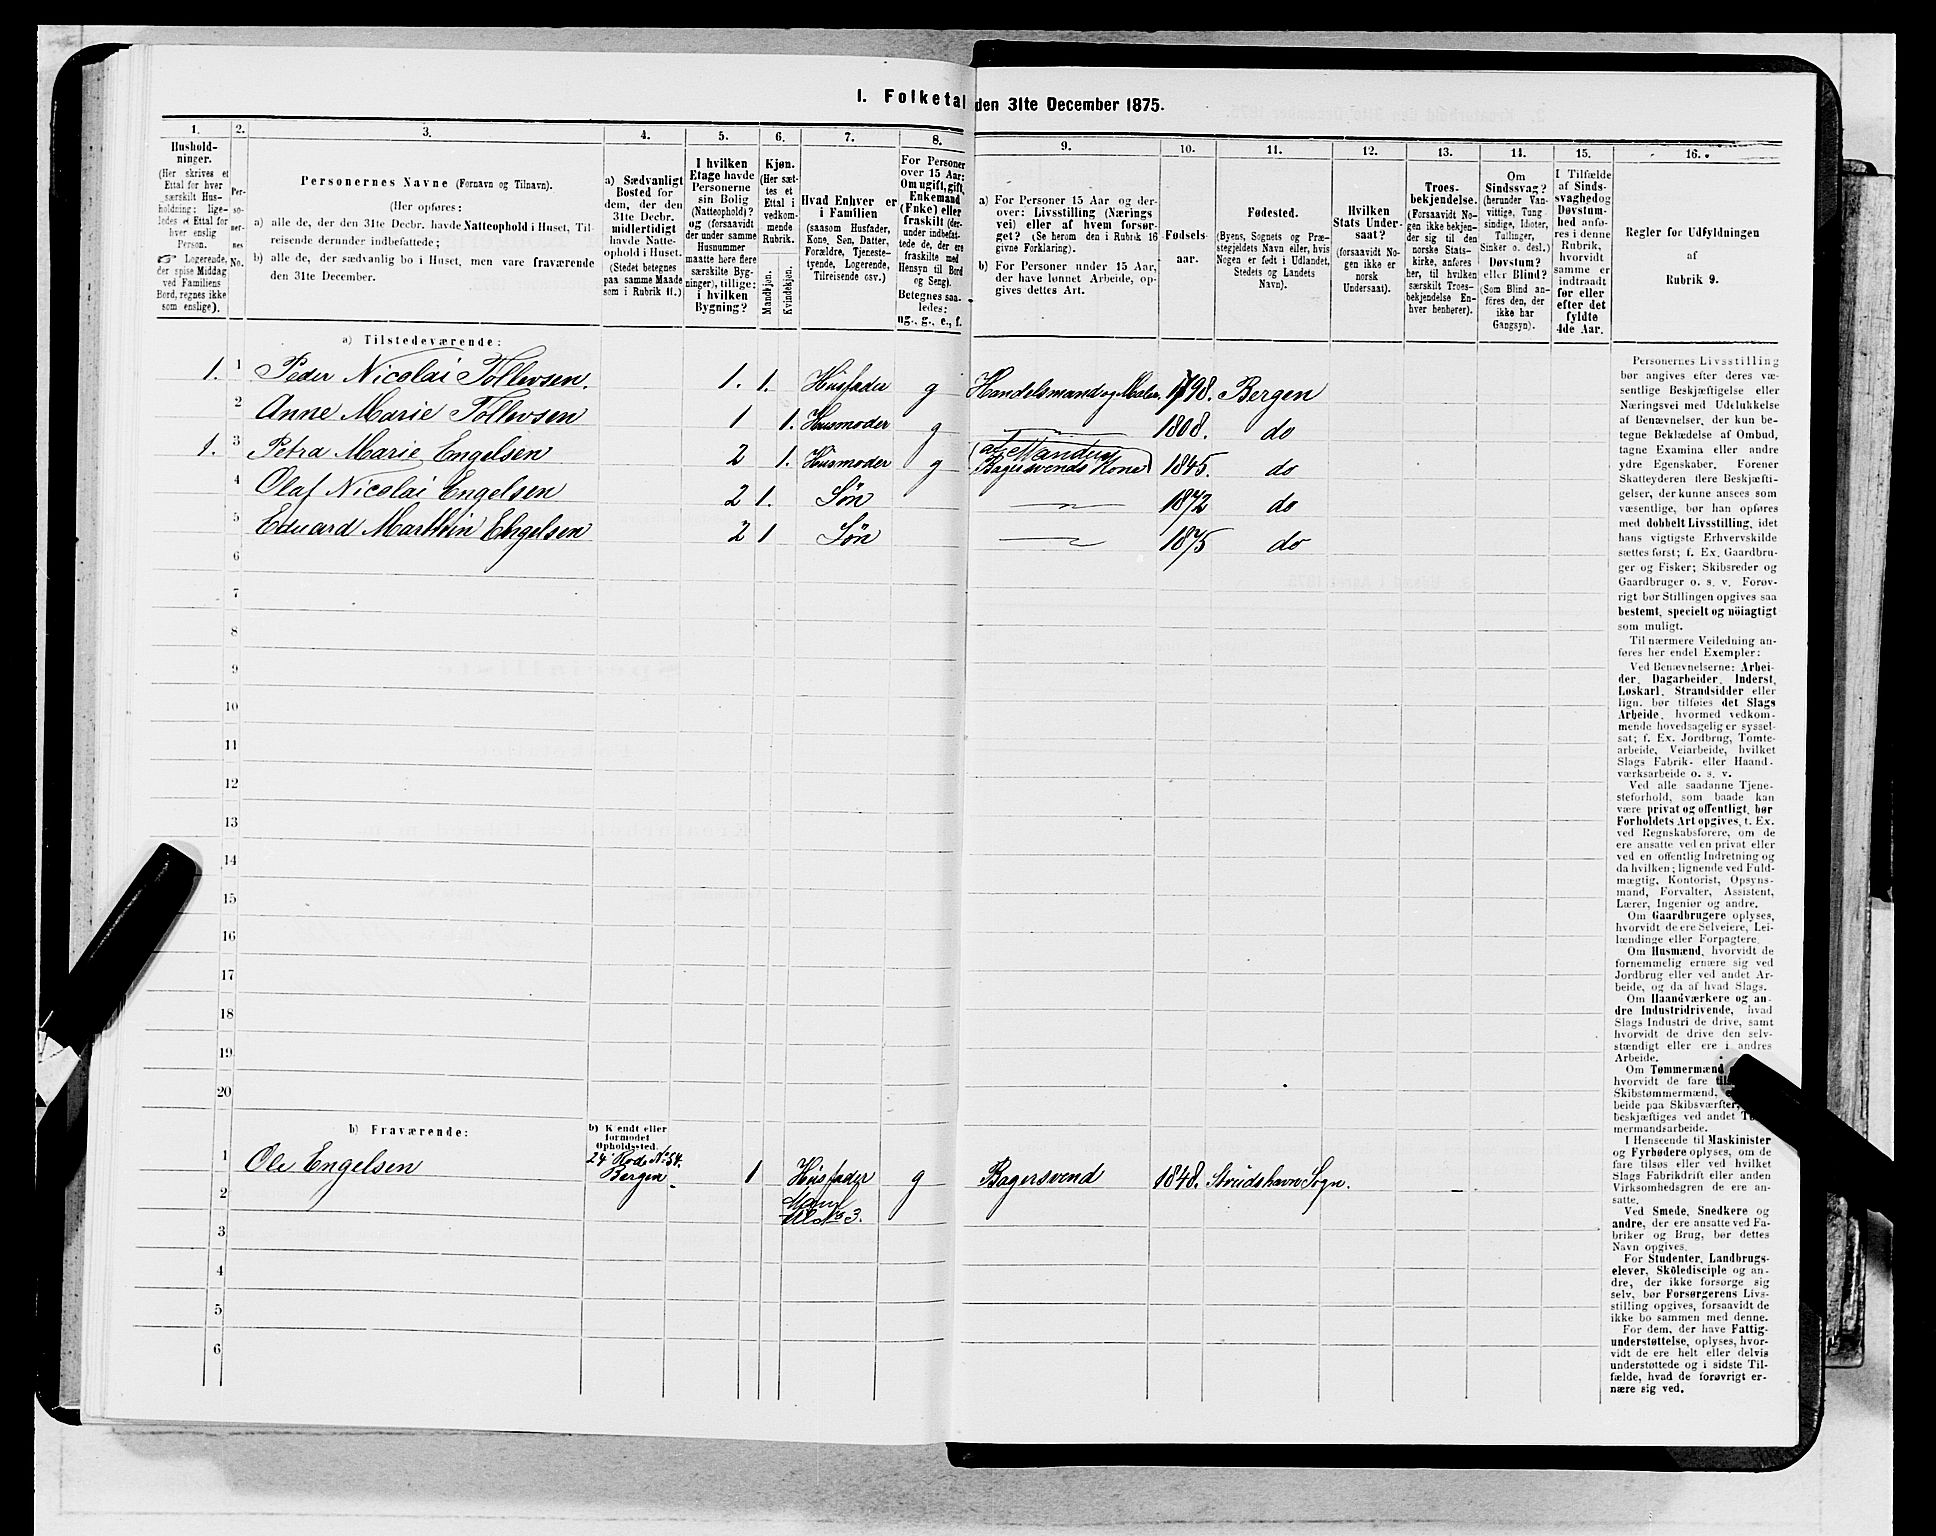 I. Folketal den 31te December 1875.
1.
Hushold-
ninger.
(Her skrives et
Ettal for hver
særskilt Hus-
holdning; lige-
ledes et Ettal for
hver enslig
Person.
☞ Logerende,
der spise Middag
ved Familiens
Bord, regnes ikke
som enslige).
2.
Per-
so-
ner-
nes
No.
3.
Personernes Navne (Fornavn og Tilnavn).
(Her opføres:
a) alle de, der den 31te Decbr. havde Natteophold i Huset, Til-
reisende derunder indbefattede;
b) alle de, der sædvanlig bo i Huset, men vare fraværende
den 31te December.
4.
a) Sædvanligt
Bosted for
dem, der den
31te Decbr.
midlertidigt
havde Natte-
ophold i Huset.
(Stedet betegnes
paa samme Maade
som i Rubrik 11.)
5.
I hvilken
Etage havde
Personerne
sin Bolig
(Natteophold)?
og (forsaavidt
der under samme
Husnummer
maatte høre flere
særskilte Byg-
ninger), tillige:
i hvilken
Bygning?
6.
Kjøn.
(Her sæt-
tes et
Ettal i
vedkom-
mende
Rubrik.
Mandkjøn.
Kvindekjøn.
7.
Hvad Enhver er
i Familien
(saasom Husfader,
Kone, Søn, Datter,
Forældre, Tjeneste-
tyende, Logerende,
Tilreisende osv.)
8.
For Personer
over 15 Aar:
Om ugift, gift,
Enkemand
(Enke) eller
fraskilt (der-
under indbefat-
tede de, der ere
fraskilte med
Hensyn til Bord
og Seng).
Betegnes saa-
ledes:
ug., g., e., f.
9.
a) For Personer 15 Aar og der-
over: Livsstilling (Nærings
vei) eller af hvem forsør-
get? (Se herom den i Rubrik 16
givne Forklaring).
b) For Personer under 15 Aar,
der have lønnet Arbeide, op-
gives dettes Art.
10.
Fødsels-
aar.
11.
Fødested.
(Byens, Sognets og Præ-
stegjeldets Navn eller, hvis
Nogen er født i Udlandet,
Stedets og Landets
Navn).
12.
Hvilken
Stats Under-
saat?
(forsaavidt No-
gen ikke er
norsk
Undersaat).
13.
Troes-
bekjendelse.
(Forsaavidt No-
gen ikke bekjen-
der sig til den
norske Stats-
kirke, anføres
her, til hvilken
særskilt Troes-
bekjendelse En-
hver henhører).
14.
Om
Sindssvag?
(herunder Van-
vittige, Tung
sindige, Idioter,
Tullinger,
Sinker o. desl.)
Døvstum?
eller Blind?
(Som Blind an-
føres den, der
ikke har
Gangsyn).
15.
I Tilfælde
af Sinds-
svaghed og
Døvstum-
hed anfø-
res i denne
Rubrik,
hvorvidt
samme er
indtraadt
før eller
efter det
fyldte
4de Aar.
16.
Regler for Udfyldningen
af
Rubrik 9.
a) Tilstedeværende:
1. 1 Peder Nicolai Tollevsen. 1. 1. Husfader g Handelsmand og Maler. 1798. Bergen
2 Anne Marie Tollevsen 1 1. Husmoder g 1808. do
1. 3 Petra Marie Engelsen 2 1. Husmoder g Bagersvends Kone 1845. do
4 Olaf Nicolai Engelsen 2 1. Søn 1872 do
5 Eduard Marthin Engelsen 2 1 Søn 1875 do
6
7
8
9
10
11
12
13
14
15
16
17
18
19
20
b) Fraværende:
b) Kjendt eller
formodet
Opholdssted.
1 Ole Engelsen 24 Rode No. 54. Bergen 1 Husfader g Bagersvend 1848. Strudshavn Sogn.
2
3
4
5
6
Personernes Livsstilling
bør angives efter deres væ-
sentlige Beskjæftigelse eller
Næringsvei med Udelukkelse
af Benævnelser, der kun be-
tegne Beklædelse af Ombud,
tagne Examina eller andre
ydre Egenskaber. Forener
Skatteyderen flere Beskjæfti-
gelser, der kunne ansees som
væsentlige, bør han opføres
med dobbelt Livsstilling, idet
hans vigtigste Erhvervskilde
sættes først; f. Ex. Gaardbru-
ger og Fisker; Skibsreder og
Gaardbruger o. s. v. Forøv-
rigt bør Stillingen opgives saa
bestemt, specielt og nöiagtigt
som muligt.
Til nærmere Veiledning an-
føres her endel Exempler:
Ved Benævnelserne: Arbei-
der, Dagarbeider, Inderst,
Løskarl, Strandsidder eller
lign. bør tilføies det Slags
Arbeide, hvormed vedkom-
mende hovedsagelig er syssel-
sat; f. Ex. Jordbrug, Tomte-
arbeide, Veiarbeide, hvilket
Slags Fabrik- eller Haand-
værksarbeide o. s. v.
Ved alle saadanne Tjene-
steforhold, som baade kan
være privat og offentligt, bør
Forholdets Art opgives, t. Ex.
ved Regnskabsførere, om de
ere ansatte ved en privat eller
ved en offentlig Indretning og
da hvilken; lignende ved Fuld-
mægtig, Kontorist, Opsyns-
mand, Forvalter, Assistent,
Lærer, Ingeniør og andre.
Om Gaardbrugere oplyses,
hvorvidt de ere Selveiere, Lei-
lændinge eller Forpagtere.
Om Husmænd, hvorvidt de
fornemmelig ernære sig ved
Jordbrug eller ved andet Ar-
beide, og da af hvad Slags.
Om Haandværkere og an-
dre Industridrivende, hvad
Slags Industri de drive, samt
hvorvidt de drive den selv-
stændigt eller ere i andres
Arbeide.
Om Tømmermænd
hvorvidt de fare
Skibstømmermænd,
beide paa Skibsværfter,
beskjæftiges ved andet
mermandsarbeide.
I Henseende til Maskinister
og Fyrbødere oplyses, om de
fare tilsøs eller ved hvilket
Slags Fabrikdrift eller anden
Virksomhedsgren de ere an-
satte.
Ved Smede, Snedkere og
andre, der ere ansatte ved Fa-
briker og Brug, bør dettes
Navn opgives.
For Studenter, Landbrugs-
elever, Skoledisciple og an-
dre, der ikke forsørge sig
selv, bør Forsørgerens Livs-
stilling opgives, forsaavidt de
ikke bo sammen med denne.
For dem, der have Fattig-
understøttelse, oplyses, hvor-
vidt de ere helt eller delvis
understøttede og i sidste Til-
fælde, hvad de forøvrigt er-
nære sig ved.